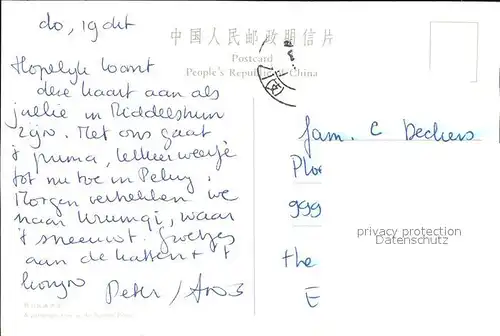 do, 19 okt
中国人民邮政明信片
Postcard
People's Republic of China
Hopelijk komt
deze kaart aan als
jullie in Middelshum
zijn. Met ons gaat
't prima, lekker weertje
tot nu toe in Peking.
Morgen vertrekken we
naar Urumqi, waar
't sneeuwt. Groetjes
aan de katten + 't
konijn Peter /
fam. C Deckers
999
the
E
privacy protection
Datenschutz